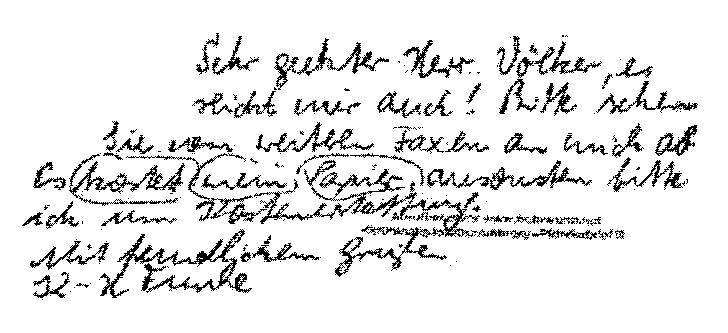 Sehr geehrter Herr Völker, es
reicht mir auch! Bitte sehen
Sie von weiteren Faxen an mich ab
Es kostet mein Papier, ansonsten bitte
ich um Kostenerstattung.
Mit freundlichem Grüßen